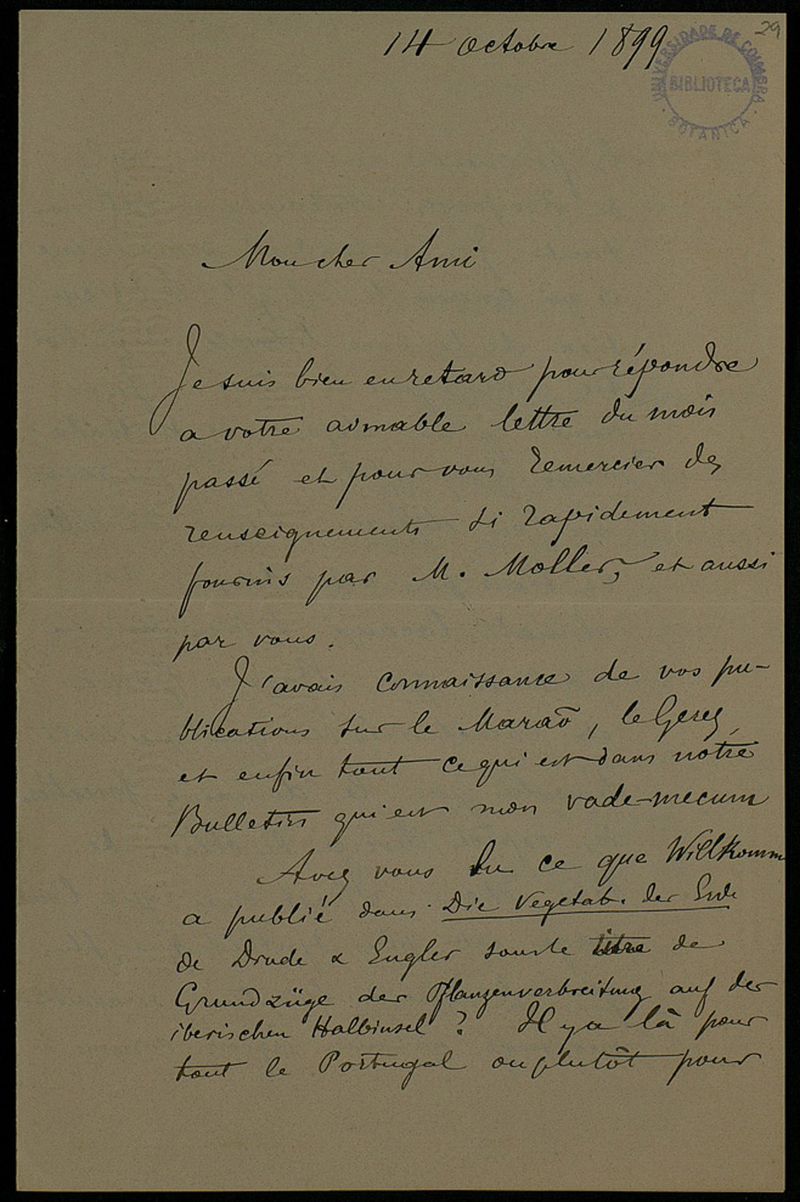 29
14 Octobre 1899
UNIVERSIDADE DE COIMBRA
BIBLIOTECA
BOTANICA
Mon cher Ami
Je suis bien en retard pour répondre
a votre aimable lettre du mois
passé et pour vous remercier des
renseignements si rapidement
fournis par M. Moller, et aussi
par vous.
J'avais connaissance de vos pu-
blications sur le Maraõ, le Gerez,
et enfin tout ce qui est dans notre
Bulletin qui est mon vade-mecum
Avez vous lu ce que Willkomm
a publié dans Die Vegetat. der Erde
de Drude & Engler sous le titre de
Grundzüge der Pflanzenverbreitung auf der
iberischen Halbinsel ? Il y a là pour
tout le Portugal ou plutôt pour